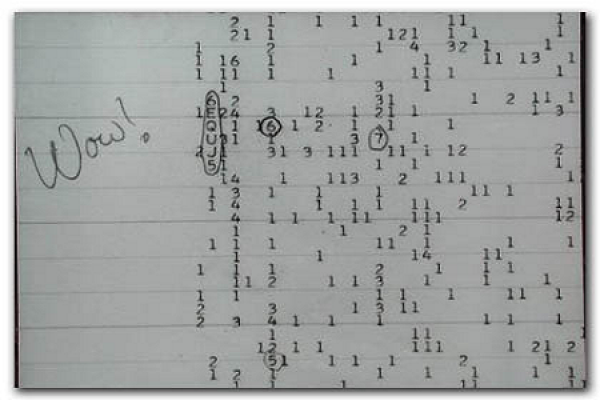 2 1 1 1 1 11 1
21 1 121 1 1 1
1 2 1 4 32 1 1
1 16 1 1 1 11 13 1
1 11 1 1 11 1
1 3 1
6 2 31 1 2 11 1
1 E 24 3 12 1 21 1 1 3
Q 1 1 16 1 2 1 1 1
Wow!
U 31 1 3 7
2 J 1 31 3 111 11 1 12 2
5 1 1 1 1
14 1 113 2 111
1 3 1 1 1 1 11 1
1 4 1 1 1 11 2 11
4 1 1 1 11 111 12
1 1 1 2 1
1 1 1 11 1 1 1
1 1 14 11
1 1 1 2 1 1 1
11 2 1 1 3 1
1 1 1 1 1 11 1
2 3 1 3 11
2 3 4 1 1 1 1 1 1
1 11
12 1 1 111 1 21 2
2 51 1 1 1 2 1
1 1 1 1 1 1 1